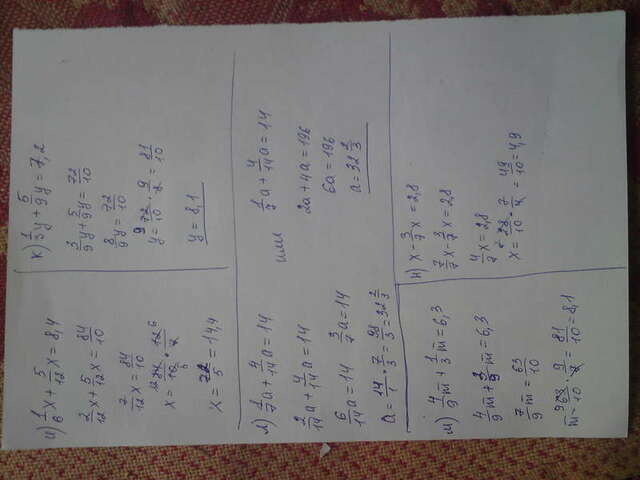 и) 1/6 x + 5/12 x = 8,4
2/12 x + 5/12 x = 84/10
7/12 x = 84/10
x = 84/10 · 12/7
x = 72/5 = 14,4
к) 1/3 y + 5/9 y = 7,2
3/9 y + 5/9 y = 72/10
8/9 y = 72/10
y = 72/10 · 9/8 = 81/10
y = 8,1
л) 1/7 a + 4/14 a = 14
2/14 a + 4/14 a = 14
6/14 a = 14 3/7 a = 14
a = 14/1 · 7/3 = 98/3 = 32 2/3
или
1/7 a + 4/14 a = 14
2a + 4a = 196
6a = 196
a = 32 2/3
м) 4/9 m + 1/3 m = 6,3
4/9 m + 3/9 m = 6,3
7/9 m = 63/10
m = 63/10 · 9/7 = 81/10 = 8,1
н) x - 3/7 x = 2,8
7/7 x - 3/7 x = 2,8
4/7 x = 2,8
x = 28/10 · 7/4 = 49/10 = 4,9